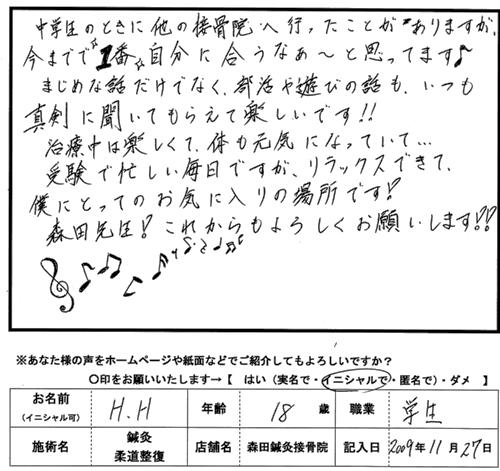 中学生のときに他の接骨院へ行ったことがありますが、
今までで☆1番☆自分に合うなぁ〜と思ってます♪
まじめな話だけでなく、部活や遊びの話も、いつも
真剣に聞いてもらえて楽しいです!!
治療中は楽しくて、体も元気になっていて…
受験で忙しい毎日ですが、リラックスできて、
僕にとってのお気に入りの場所です!
森田先生!これからもよろしくお願いします!!
※あなた様の声をホームページや紙面などでご紹介してもよろしいですか?
〇印をお願いいたします→【 はい（実名で・イニシャルで・匿名で）・ダメ 】
お名前 (イニシャル可) H.H 年齢 18 歳 職業 学生
施術名 鍼灸 柔道整復 店舗名 森田鍼灸接骨院 記入日 2009年11月27日